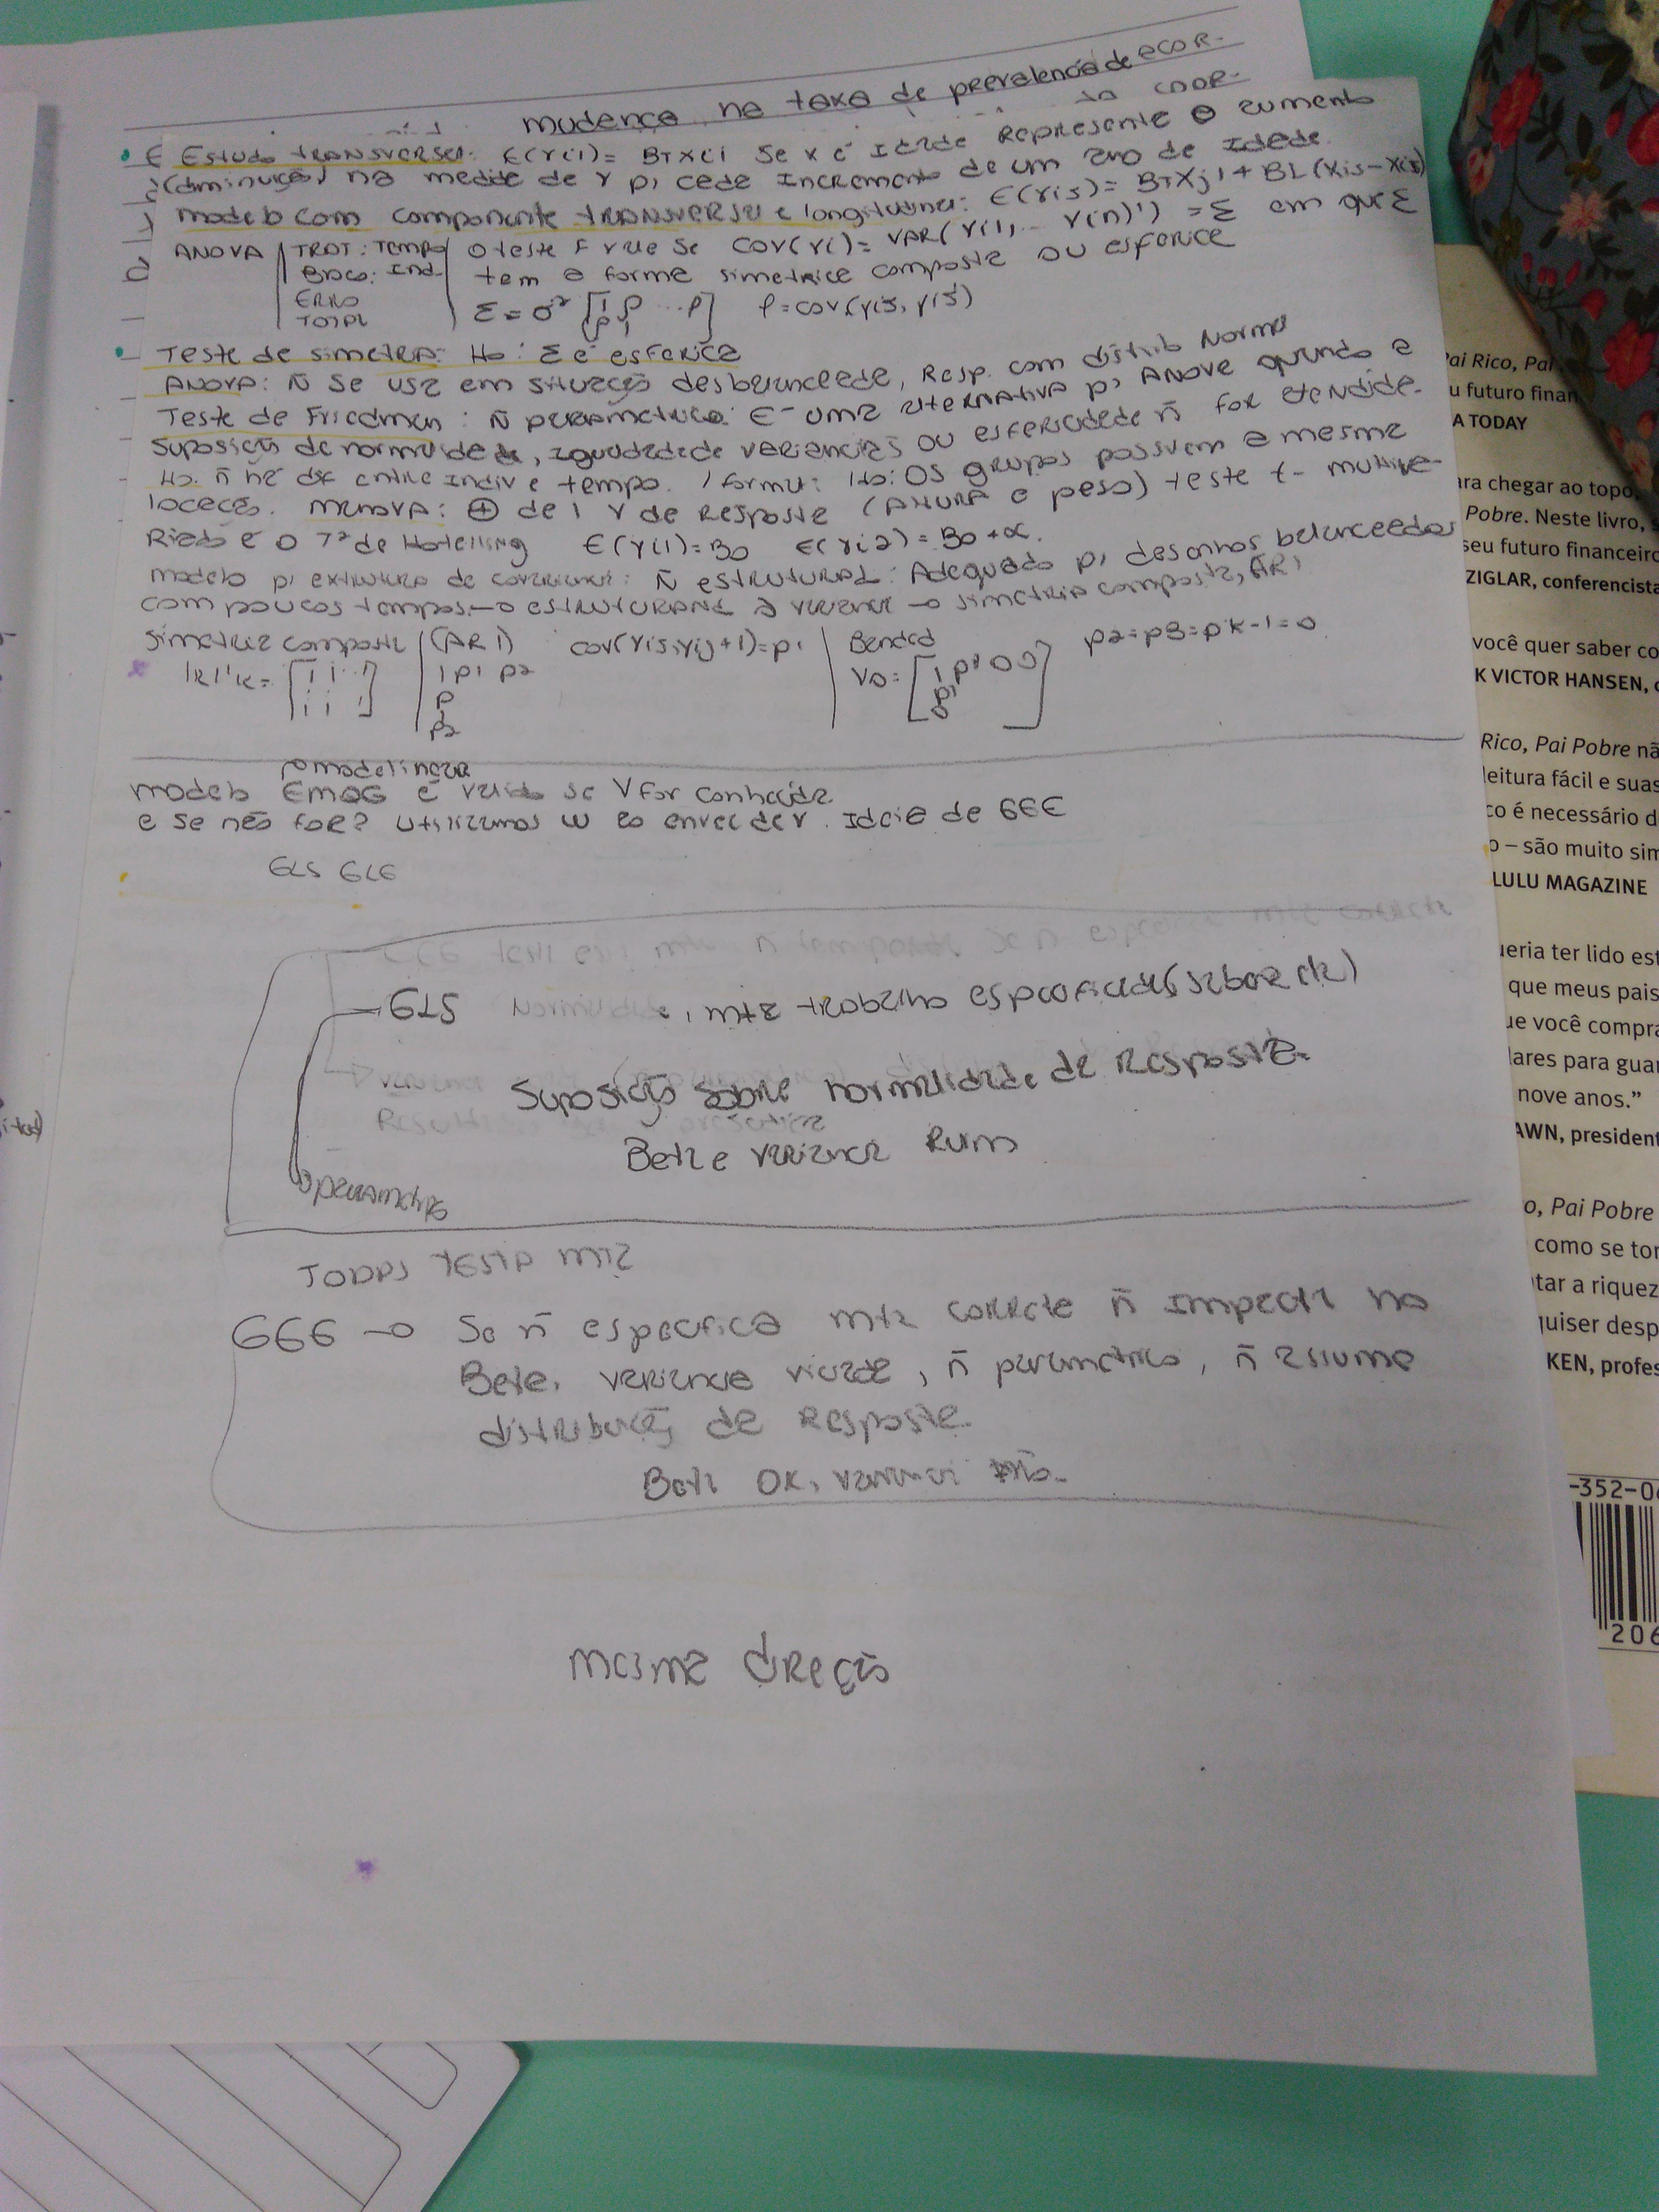 mudença na taxa de prevalencia de acor-
Estudo transversal: E(Yi1) = BTXi1 se x é Idade Representa o aumento
(diminuição) na medida de Y p/ cada Incremento de um ano de Idade.
modelo com componente transversal e longitudinal: E(Yij) = BTXj1 + BL(Xij-Xi1)
ANOVA | TRAT: Tempo | O teste F vale se COV(Yi) = VAR(Yi1, .. Y(n)') = Σ em que Σ
Bloco: Ind. | tem a forma simetrica composta ou esferica
ERRO
TOTAL
Σ = σ² [1 ρ ... ρ] ρ = cov(yij, yij')
Teste de simetria: Ho: Σ é esferica
ANOVA: Ñ se usa em situação desbalanceada, Resp. com distrib Normal
Teste de Friedman: ñ parametrico: É uma alternativa p/ Anova quando a
suposição de normalidade, igualdade de variancias ou esfericidade ñ for atendida.
Ho: ñ há dif entre Indiv e tempo. / formal: Ho: Os grupos possuem a mesma
locação. Manova: ⊕ de 1 Y de Resposta (Altura e peso) teste t- multiva-
Riado é o T² de Hotelling E(Yi1) = B0 E(Yi2) = B0 + α.
modelo p/ estrutura de covariancia: Ñ estrutural: Adequado p/ desenhos balanceados
com poucos tempos. estruturada a variancia simetria composta, AR1
simetria composta | (AR1) cov(Yij, Yij+1) = ρ1 | Banded ρ2 = ρ3 = ρk-1 = 0
1k1'k = [1 1 .. 1 | 1 ρ1 ρ2 | V0 = [1 ρ1 0 0]
1 1 1] | ρ | ρ1
ρ2 | 0
modelo EMQG é valido se V for conhecida
e se não for? Utilizamos W ao envez de V. Ideia de GEE
GLS GEE
GLS Normalidade, mtz trabalho especificada (saber ck)
Suposição sobre normalidade de Resposta.
Beta e variancia Ruim
parametrico
TODAS TESTA MTZ
GEE Se ñ especifica mtz correta ñ impacta no
Beta, variancia viciada, ñ parametrico, ñ assume
distribuição de Resposta.
Beta OK, variancia não.
mesma direção
Pai Rico, Pai
u futuro finan
A TODAY
ara chegar ao topo
Pobre. Neste livro,
seu futuro financeiro
ZIGLAR, conferencista
você quer saber co
K VICTOR HANSEN,
Rico, Pai Pobre nã
leitura fácil e suas
co é necessário d
o – são muito sim
LULU MAGAZINE
ueria ter lido est
que meus pais
ue você compra
lares para guar
nove anos.”
AWN, president
o, Pai Pobre
como se tor
tar a riquez
quiser desp
KEN, profes
-352-0
206